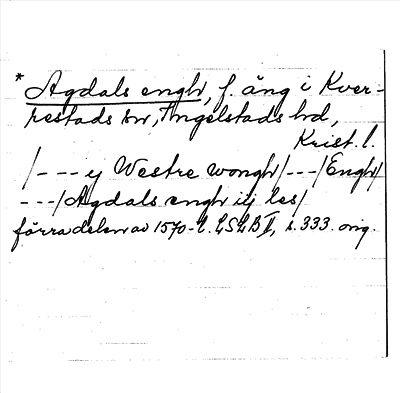 * Agdals enghr, f. äng i Kver-
restads sn, Ingelstads hd,
Krist. l.
/--- ij Westre wongh/---/Engh/
---/Agdals engh iij les/
förra delen av 1570-t. LSLB II, s. 333. orig.